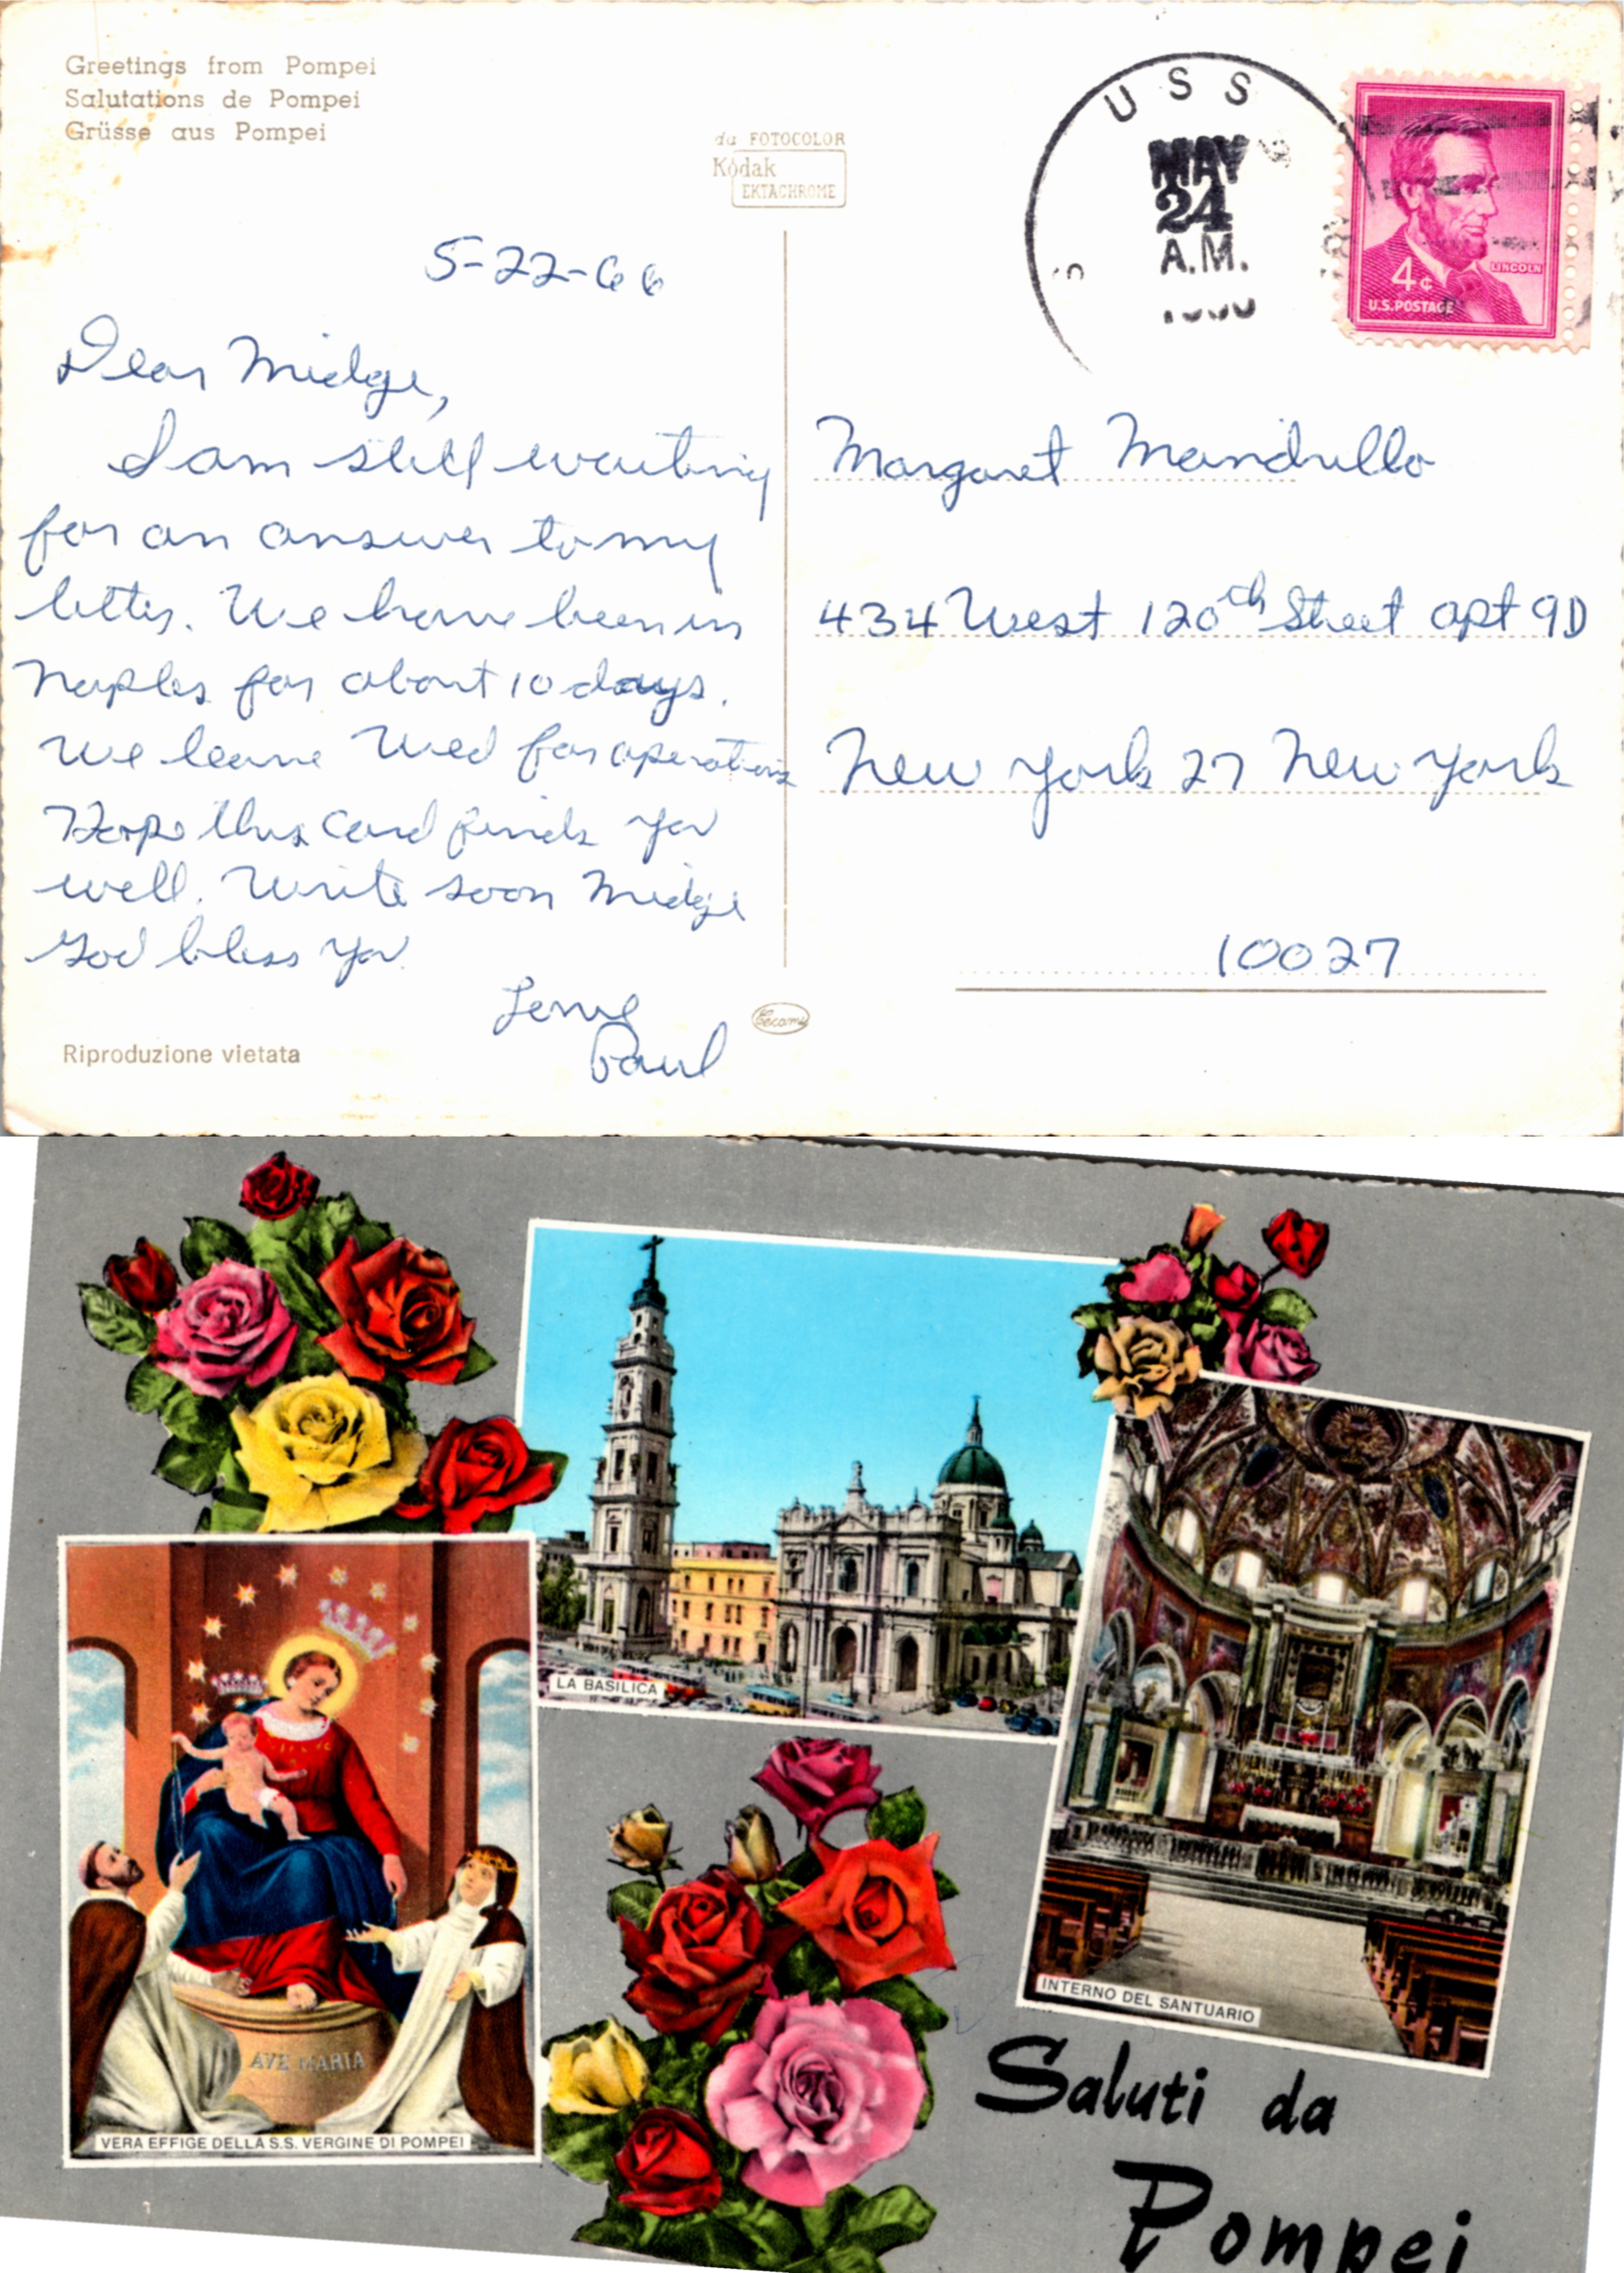 Greetings from Pompei
Salutations de Pompei
Grüsse aus Pompei
da FOTOCOLOR
Kodak
EKTACHROME
USS
MAY
24
A.M.
4¢
LINCOLN
U.S.POSTAGE
5-22-66
Dear Midge,
I am still waiting
for an answer to my
letter. We have been in
Naples for about 10 days.
We leave Wed for operations
Hope this card finds you
well. Write soon Midge
God bless you
Love
Paul
Margaret Mandrillo
434 West 120th Street apt 9D
New York 27 New York
10027
Cecami
Riproduzione vietata
LA BASILICA
AVE MARIA
VERA EFFIGE DELLA S.S. VERGINE DI POMPEI
INTERNO DEL SANTUARIO
Saluti da
Pompei